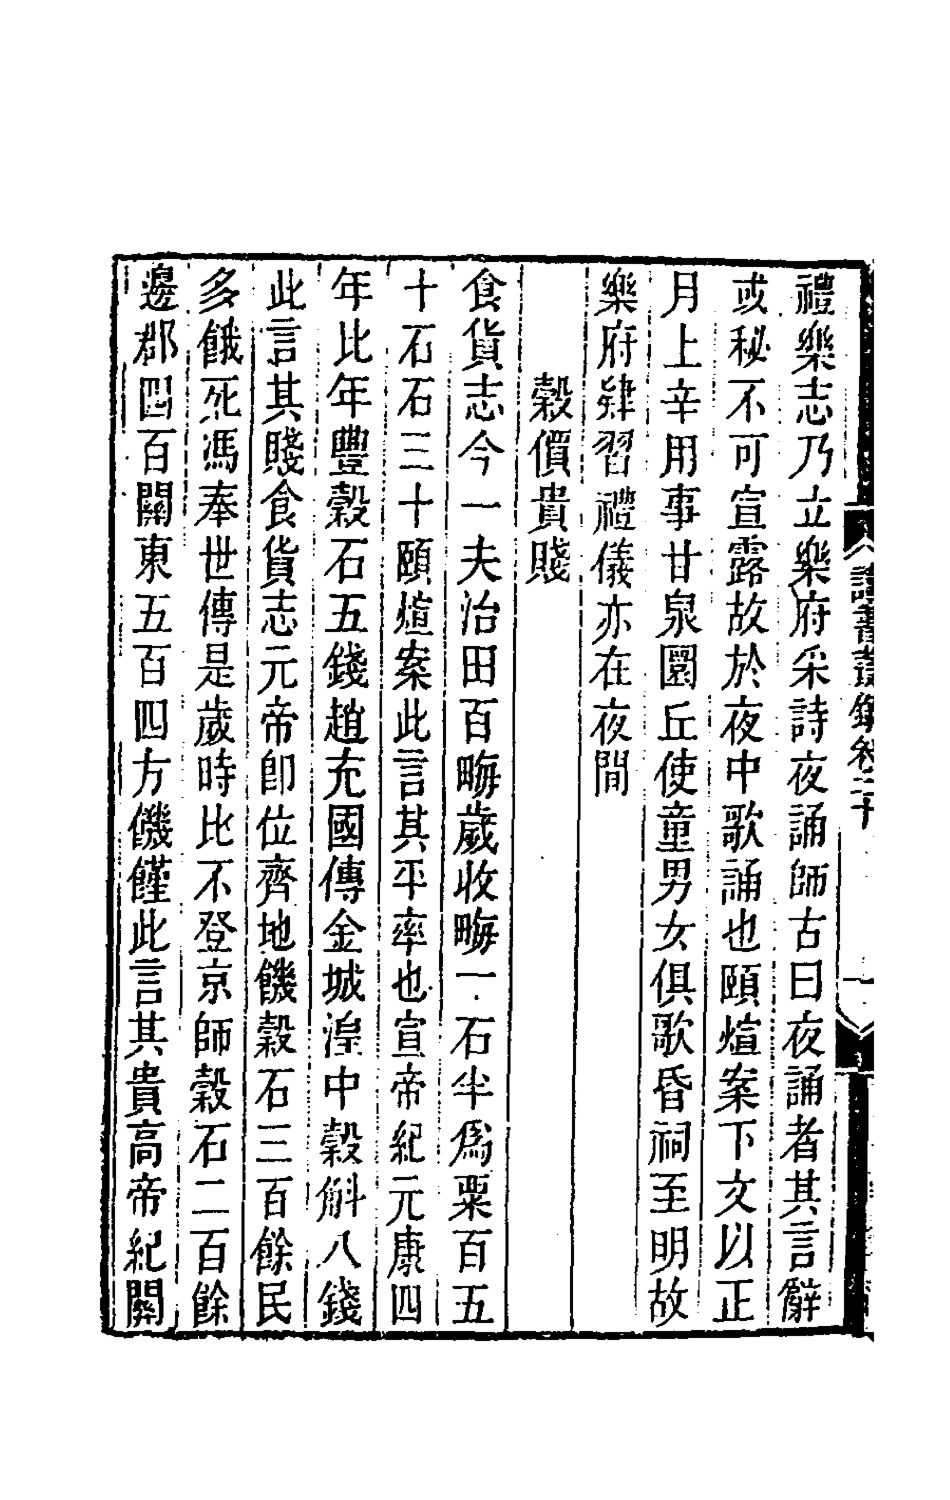 禮樂志乃立樂府采詩夜誦師古曰夜誦者其言辭
或秘不可宣露故於夜中歌誦也頤煊案下文以正
月上辛用事甘泉圜丘使童男女俱歌昏祠至明故
樂府肄習禮儀亦在夜間
穀價貴賤
食貨志今一夫治田百晦歲收晦一石半爲粟百五
十石石三十頤煊案此言其平率也宣帝紀元康四
年比年豐穀石五錢趙充國傳金城湟中穀斛八錢
此言其賤食貨志元帝卽位齊地饑穀石三百餘民
多餓死馮奉世傳是歲時比不登京師穀石二百餘
邊郡四百關東五百四方饑饉此言其貴高帝紀關
讀書叢錄卷二十
一